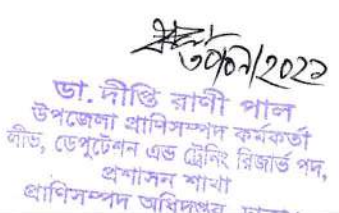 ডা. দীপ্তি রাণী পাল
উপজেলা প্রাণিসম্পদ কর্মকর্তা
লীভ, ডেপুটেশন এন্ড ট্রেনিং রিজার্ভ পদ,
প্রশাসন শাখা
প্রাণিসম্পদ অধিদপ্তর,